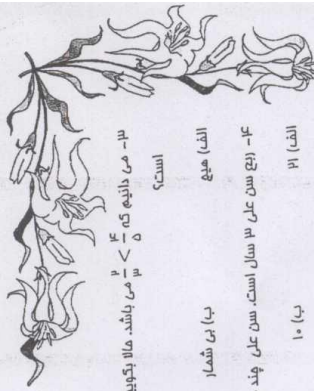 ۳- می دانیم که ۲/۳ < ۴/۵ می باشد. حالا
است؟
الف) هیچ ب) بی شمار
۴- ربع سن علی ۳ سال است. سن علی چند
الف) ۱۲ ب) ۱۰